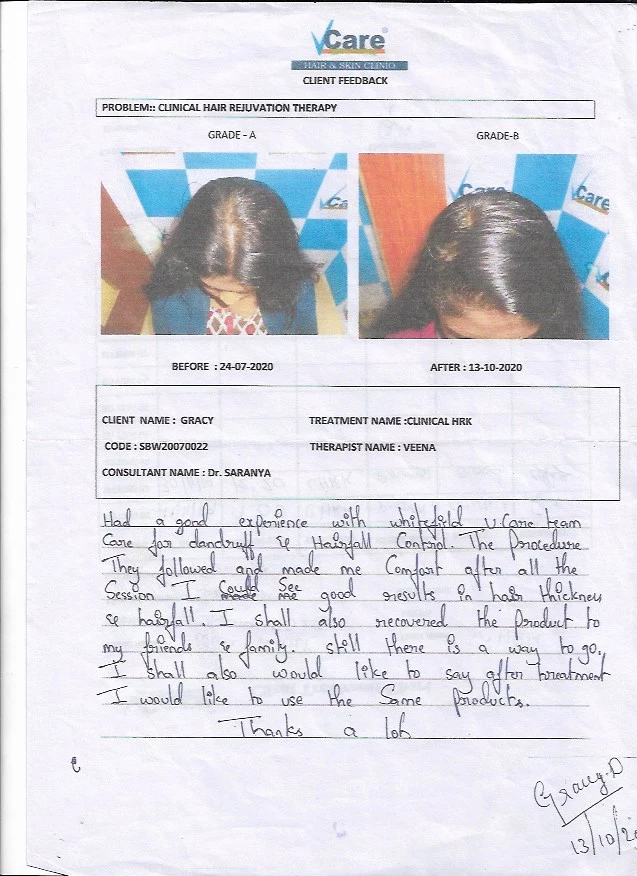 VCare
HAIR & SKIN CLINIC
CLIENT FEEDBACK
PROBLEM:: CLINICAL HAIR REJUVATION THERAPY
GRADE - A
GRADE-B
Care
Care
BEFORE : 24-07-2020
AFTER : 13-10-2020
CLIENT NAME : GRACY
TREATMENT NAME :CLINICAL HRK
CODE : SBW20070022
THERAPIST NAME : VEENA
CONSULTANT NAME : Dr. SARANYA
Had a good experience with whitefield V.Care team
Care for dandruff & Hairfall Control. The procedure
They followed and made me Comfort after all the
Session I Could See good results in hair thickness
& hairfall. I shall also recovered the product to
my friends & family. still there is a way to go.
I shall also would like to say after treatment
I would like to use the Same products.
Thanks a lot
Gracy.D
13/10/20